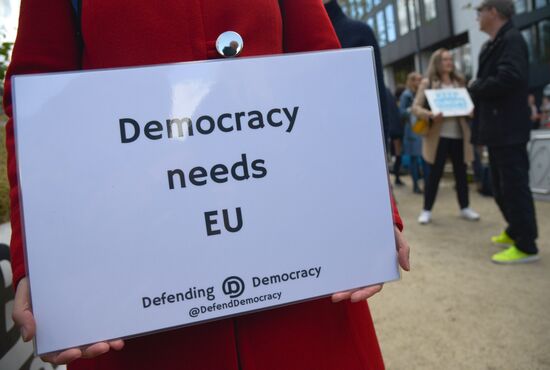 Democracy
needs
EU
Defending D Democracy
@DefendDemocracy
KEEP